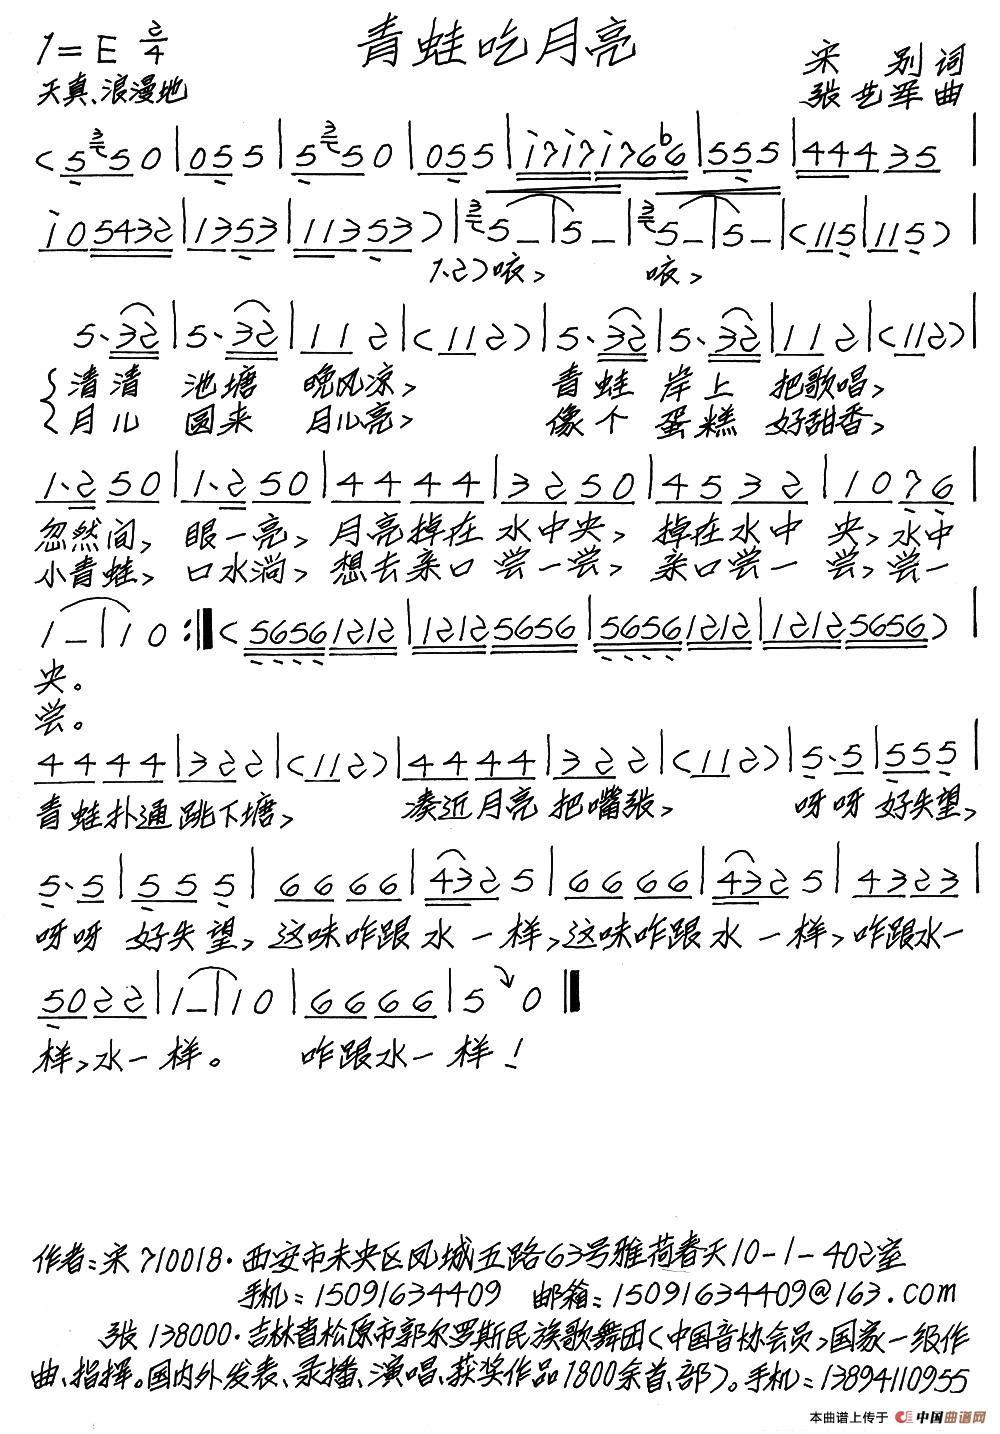 青蛙吃月亮
1=E 2/4
天真、浪漫地
宋 别 词
张艺军 曲
(5 3/7 5 0 | 0 5 5 | 5 3/7 5 0 | 0 5 5 | i 7 i 7 i 7 6 b6 | 5 5 5 | 4 4 4 3 5 |
i 0 5 4 3 2 | 1 3 5 3 | 1 1 3 5 3 ) | 5 – | 5 – | 5 – | 5 – | (1 1 5 | 1 1 5 ) |
1、2)咳, 咳,
5· 3 2 | 5· 3 2 | 1 1 2 | (1 1 2) | 5· 3 2 | 5· 3 2 | 1 1 2 | (1 1 2) |
清清 池塘 晚风凉, 青蛙 岸上 把歌唱,
月儿 圆来 月儿亮, 像个 蛋糕 好甜香,
1· 2 5 0 | 1· 2 5 0 | 4 4 4 4 | 3 2 5 0 | 4 5 3 2 | 1 0 7 6 |
忽然间, 眼一亮, 月亮掉在 水中央, 掉在水中 央,水中
小青蛙, 口水淌, 想去亲口 尝一尝, 亲口尝一 尝,尝一
1 – | 1 0 :‖ (5 6 5 6 1 2 1 2 | 1 2 1 2 5 6 5 6 | 5 6 5 6 1 2 1 2 | 1 2 1 2 5 6 5 6 ) |
央。
尝。
4 4 4 4 | 3 2 2 | (1 1 2) | 4 4 4 4 | 3 2 2 | (1 1 2) | 5· 5 | 5 5 5 |
青蛙扑通 跳下塘, 凑近月亮 把嘴张, 呀呀 好失望,
5· 5 | 5 5 5 | 6 6 6 6 | 4 3 2 5 | 6 6 6 6 | 4 3 2 5 | 4 3 2 3 |
呀呀 好失望, 这味咋跟 水一样,这味咋跟 水一样,咋跟水一
5 0 2 2 | 1 – | 1 0 | 6 6 6 6 | 5 0 ‖
样,水一 样。 咋跟水一 样!
作者:宋 710018·西安市未央区凤城五路63号雅荷春天10-1-402室
手机:15091634409 邮箱:15091634409@163.com
张 138000·吉林省松原市郭尔罗斯民族歌舞团(中国音协会员,国家一级作
曲、指挥。国内外发表、录播、演唱、获奖作品1800余首、部)。手机:13894110955
本曲谱上传于 中国曲谱网